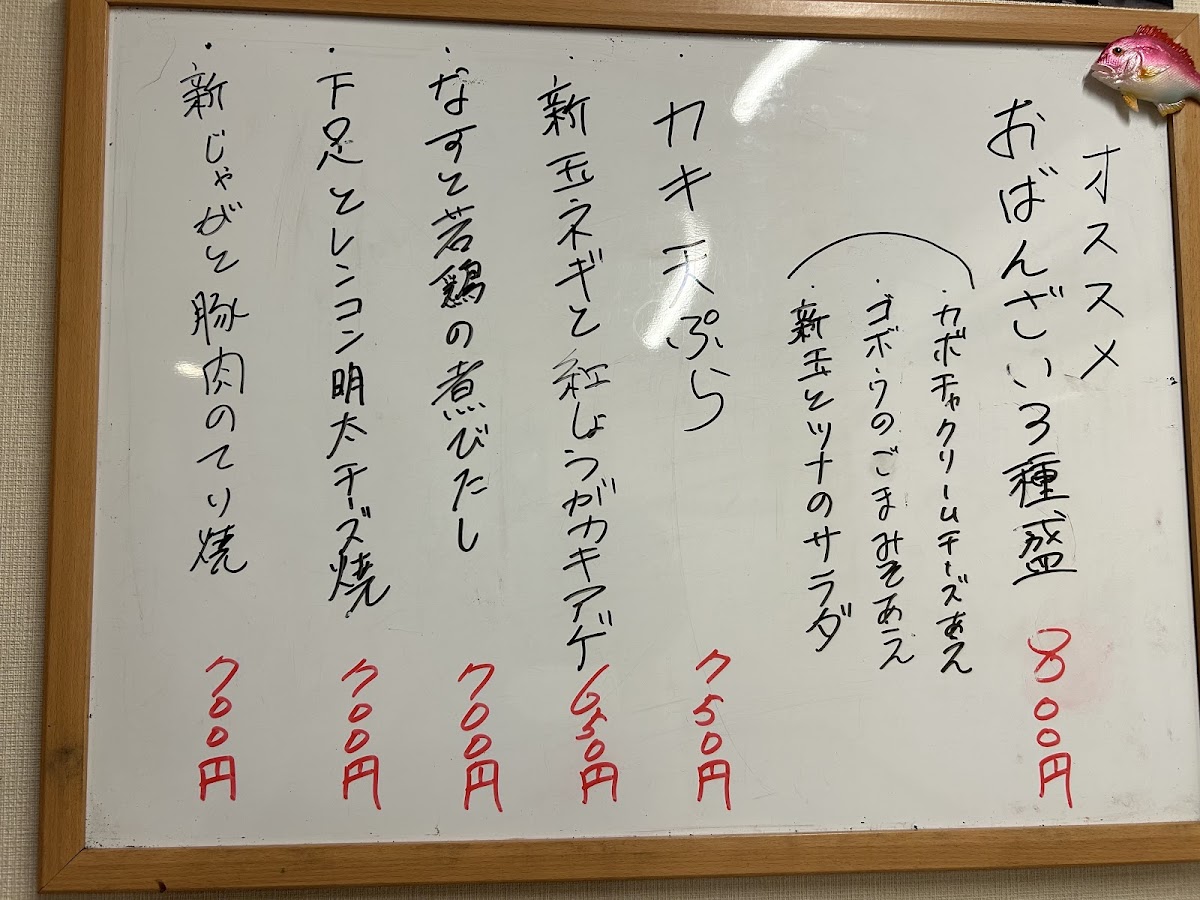 オススメ
おばんざい3種盛 800円
・カボチャクリームチーズあえ
・ゴボウのごまみそあえ
・新玉とツナのサラダ
・カキ天ぷら 750円
・新玉ネギと紅しょうがカキアゲ 650円
・なすと若鶏の煮びたし 700円
・下足とレンコン明太チーズ焼 700円
・新じゃがと豚肉のてり焼 700円